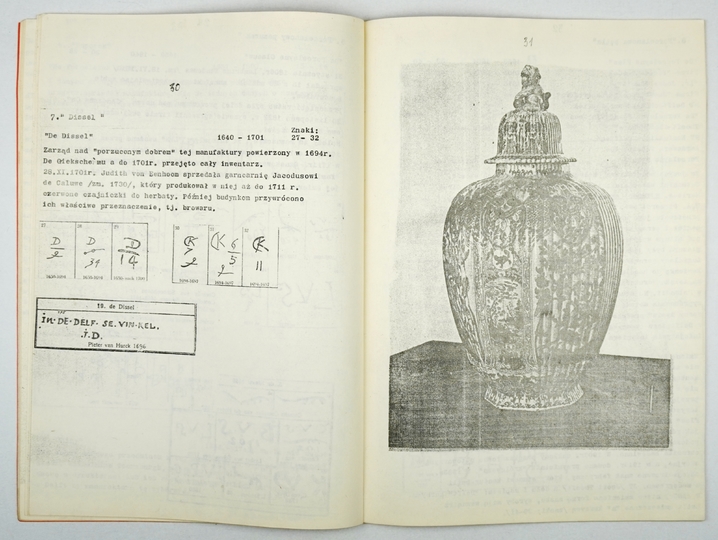 30
7." Dissel "
"De Dissel" 1640 - 1701 Znaki:
27- 32
Zarząd nad "porzuconym dobrem" tej manufaktury powierzony w 1694r.
De a do 1701r. przejęto cały inwentarz.
28.XI.1701r. Judith von Eenhoom sprzedała garncarnię Jacodusowi
de Caluwe /zm. 1730/, który produkował w niej aż do 1711 r.
czerwone czajniczki do herbaty. Później budynkom przywrócono
ich właściwe przeznaczenie, tj. browaru.
27
D
28
D
34
29
D
14
30
CK
31
CK 6
5
32
CK
11
19. de Dissel
IN·DE·DELF·SE.VIN·KEL.
I.D.
Pieter van Hurck 1696
31